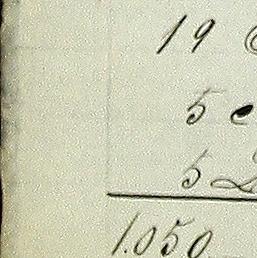 19
5
5
1.050